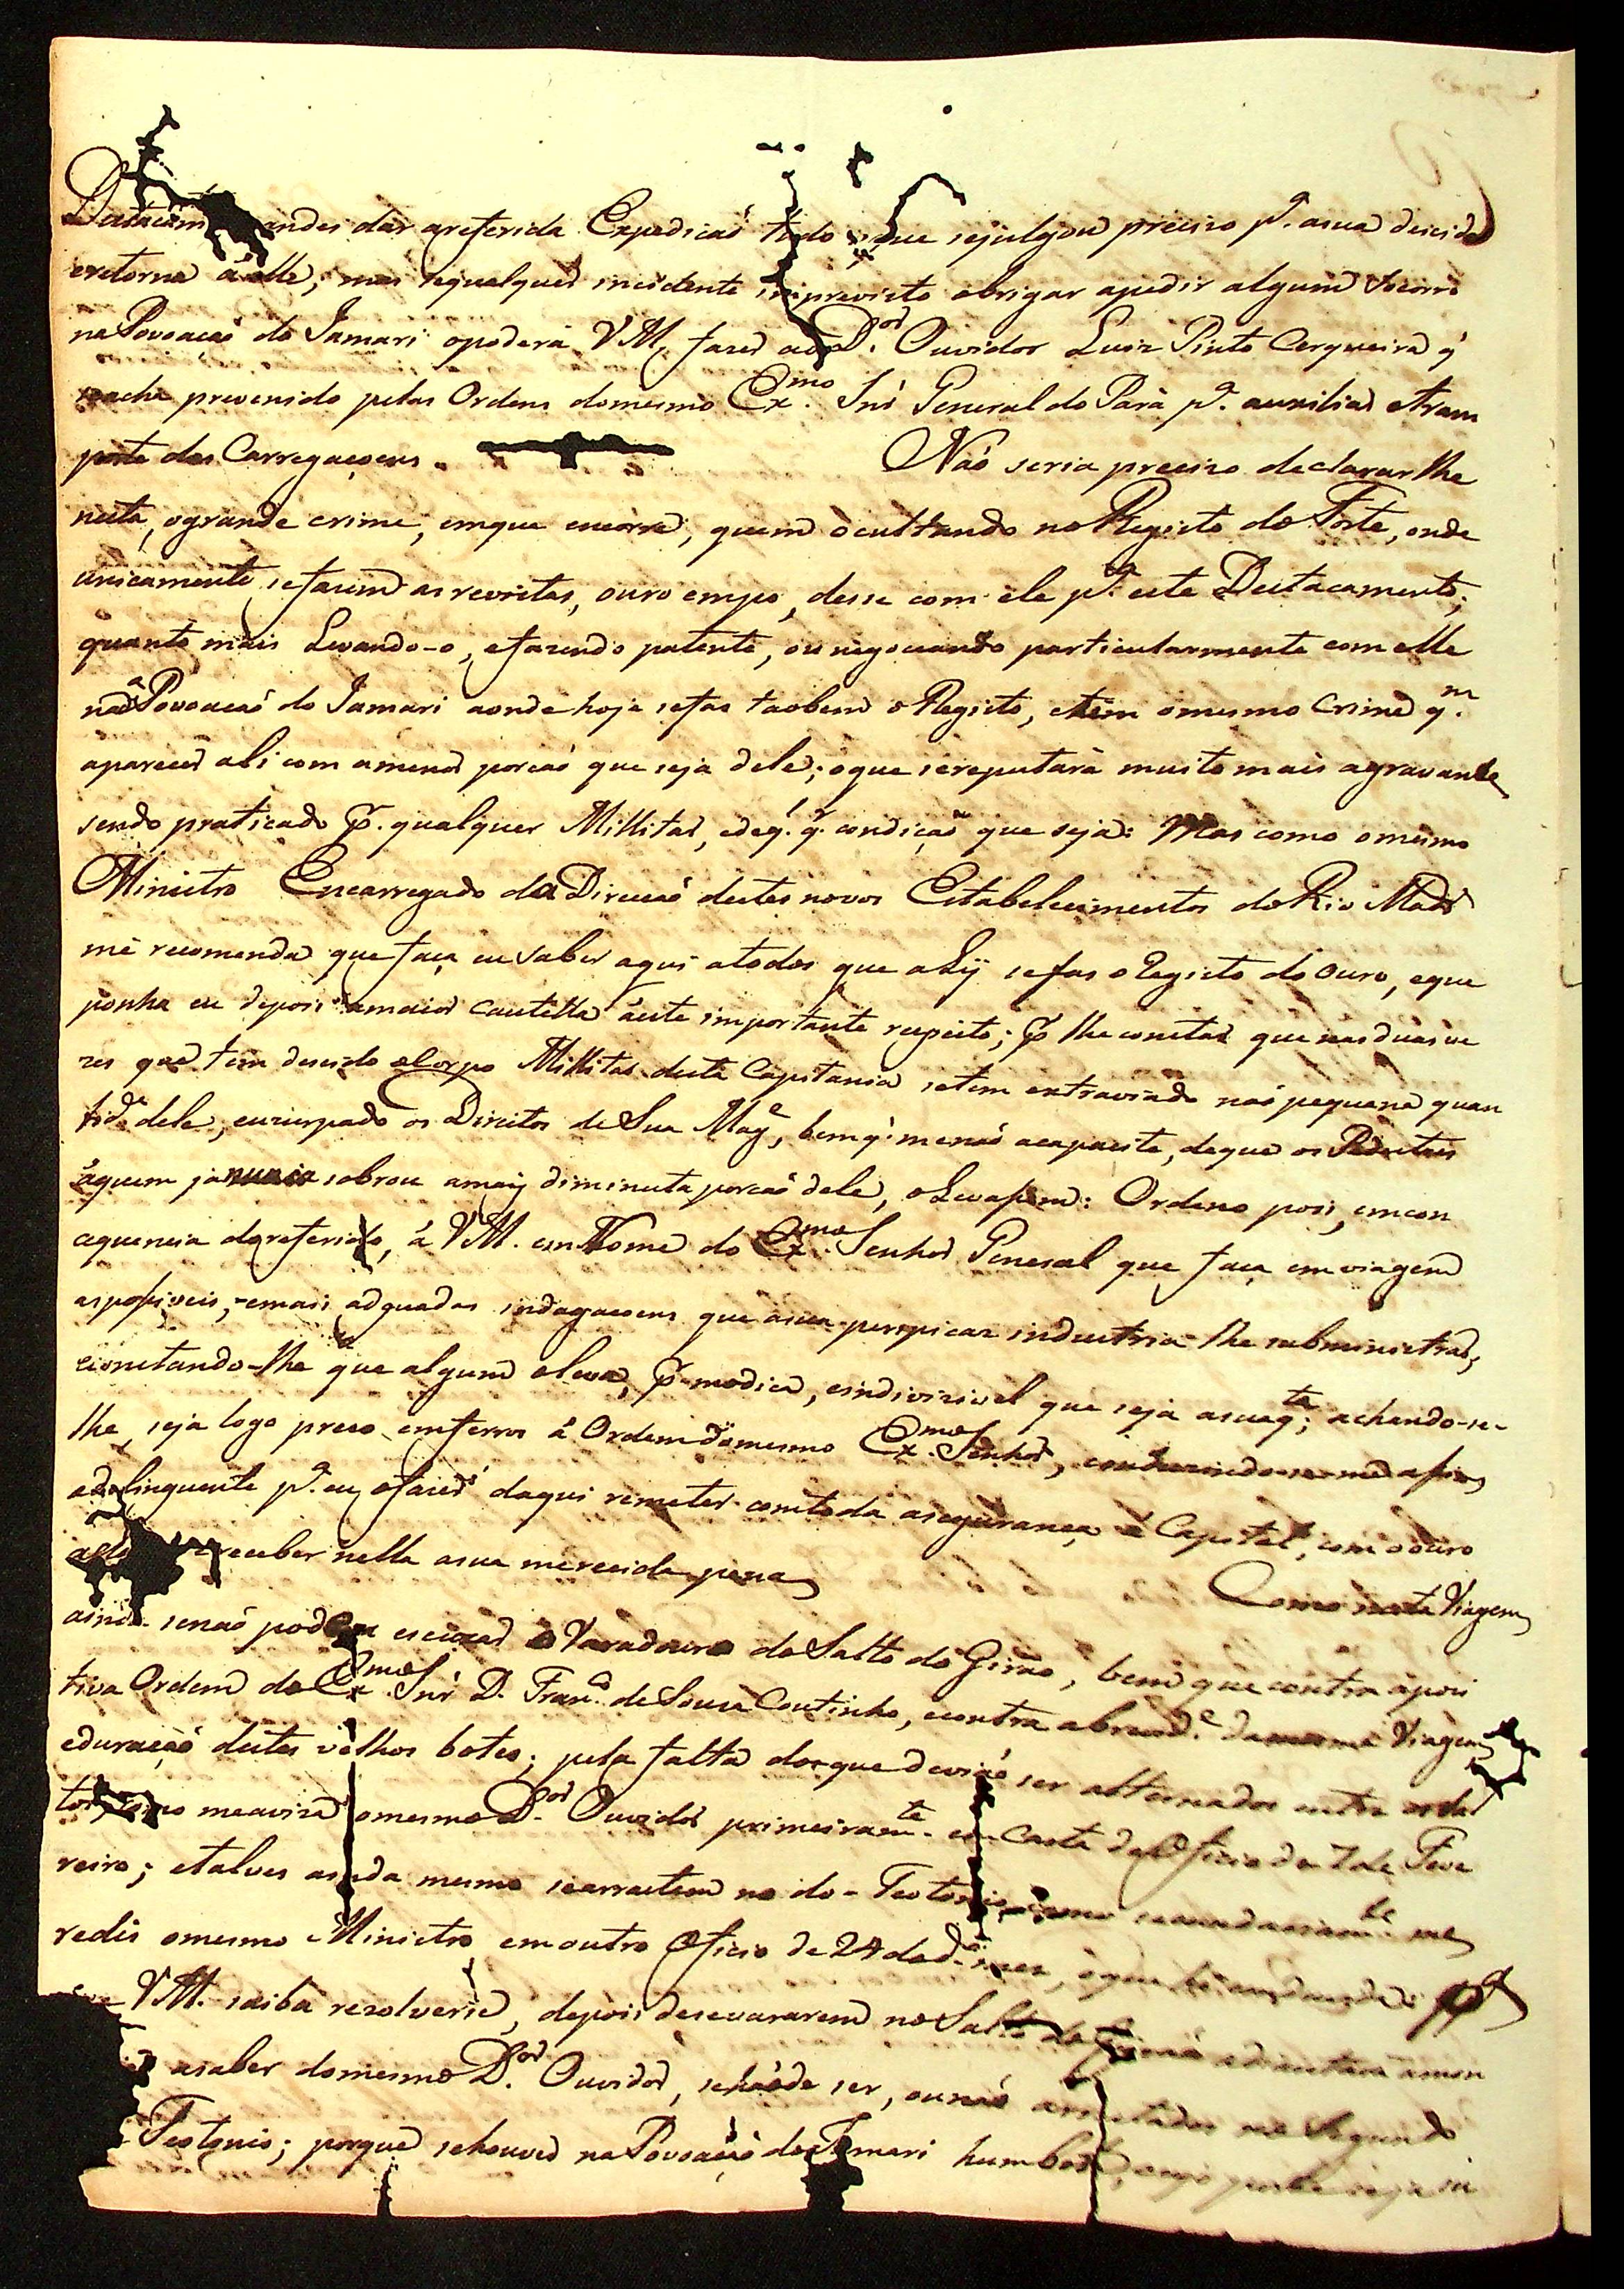 Destacam andei dár areferida Expedicaó tudo que sejulgou preciso p.ª asua descida
eretorno áelle; mas sequalquer incidente imprevisto obrigar apedir algum socorro
naPovoaçaó do Jamari opoderá VM. fazer aoD.or Ouvidor Luiz Pinto Cerqueira q̃
seacha prevenido pelas Ordens domesmo Ex.mo Snr̃ General do Pará p.ª auxiliar etrans
porte das Carregaçoens. Naó seria preciso declararlhe
nesta, ogrande crime, emque encorre, quem ocultando no Registo do Forte, onde
unicamente sefazem asrevistas, ouro empo, desse com ele p.ª este Destacamento;
quanto mais Levando-o, efazendo patente, ou negociando particularmente com elle
na Povoacaó do Jamari aonde hoje sefas taobem o Registo, etem omesmo Crime q.m
aparecer ali com amenor porcaó que seja dele; oque sereputará muito mais agravante
sendo praticado p. qualquer Millitar, edeq.l q.r condiçaõ que seja: Mas como omesmo
Ministro Encarregado da Direcaó destes novos Estabelecimentos do Rio Madr.ª
me recomenda que faça eu saber aqui atodos que aLy sefas o Registo do Ouro, eque
ponha eu depois amaior Cautella áeste importante respeito; p. lhe constar que nas duas ve
zes que tem descido oCorpo Millitar desta Capitania setem extraviado naó pequena quan
tid.e dele, euzurpado os Direitos de Sua Mag.e, bem q̃ menaó acapacite, deque os Pedestres
áquem já nunca sobrou amaiz diminuta porcaó dele, oLevassem: Ordeno pois, emcon
cequencia doreferido, á VM. em Nome do Ex.mo Senhor General que faça emviagem
aspossiveis, emais adquadas indagacoens que ásua perspicaz industria lhe subministrar,
econstando-lhe que algum oleva, p. modica, eindivizivel que seja asuaq.ta; achando-se-
lhe, seja logo prezo emferros á Ordem domesmo Ex.mo Senhor, conduzindo-se-me
odelinquente p.ª eu ofazer daqui remeter comtoda aseguranca á Capital, com oouro
receber nella asua merecida pena Como nesta Viagem
ainda senaó podem escuzar o Varadouro do Salto do Giráo, bem que contra apozi
tiva Ordem do Ex.mo Snr̃ D. Fran.co de Souza Coutinho, econtra abrevid.e damesma Viagem
eduracaó destes velhos botes; pela falta dosque deviaó ser alternados entre os Sal
tos, como meaviza omesmo D.or Ouvidor primeiram.te em Carta deOficio de 7 de Feve
reiro; etalves ainda mesmo searrastem no do Teotonio, como secundariam.te me
redis omesmo Ministro emoutro Oficio de 24 dod.o mez,
VM. saiba rezolverse, depois desevararem no Salto do Giraó
asaber domesmo D.or Ouvidor, seháode ser, ounaó arrastados no Segundo
Teotonio; porque sehouver na Povoaçaó do Jamari hum bote, cujo porte seja su